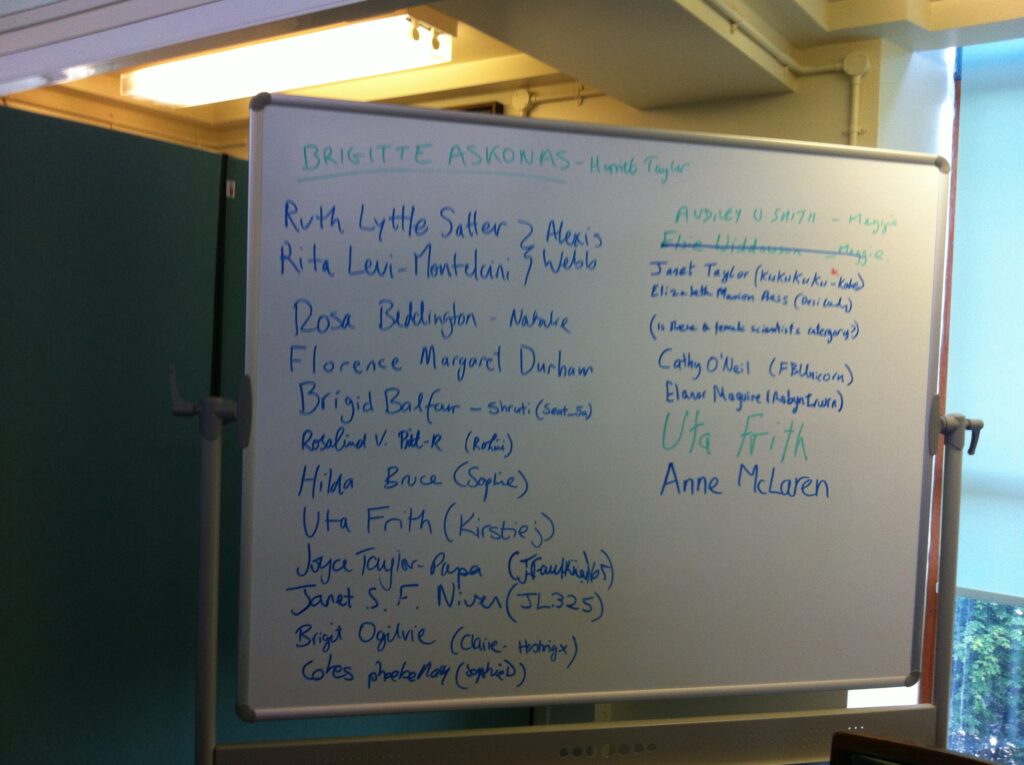 BRIGITTE ASKONAS - Harriet Taylor
Ruth Lyttle Satter } Alexis
Rita Levi-Montelcini } Webb
Rosa Beddington - Natalie
Florence Margaret Durham
Brigid Balfour - Shruti
Rosalind V. Pitt-R (Rohini)
Hilda Bruce (Sophie)
Uta Frith (Kirstiej)
Joyce Taylor-Papa
Janet S. F. Niven (JL325)
Brigit Ogilvie (Claire-
Cotes phoebe May (SophieD)
AUDREY U SMITH - Maggie
Elsie Widdowson - Maggie.
Janet Taylor (KuKuKuKu-
Elizabeth Marion
(is there a female scientists catergory?)
Cathy O'Neil (FBUnicorn)
Elanor Maguire
Uta Frith
Anne McLaren